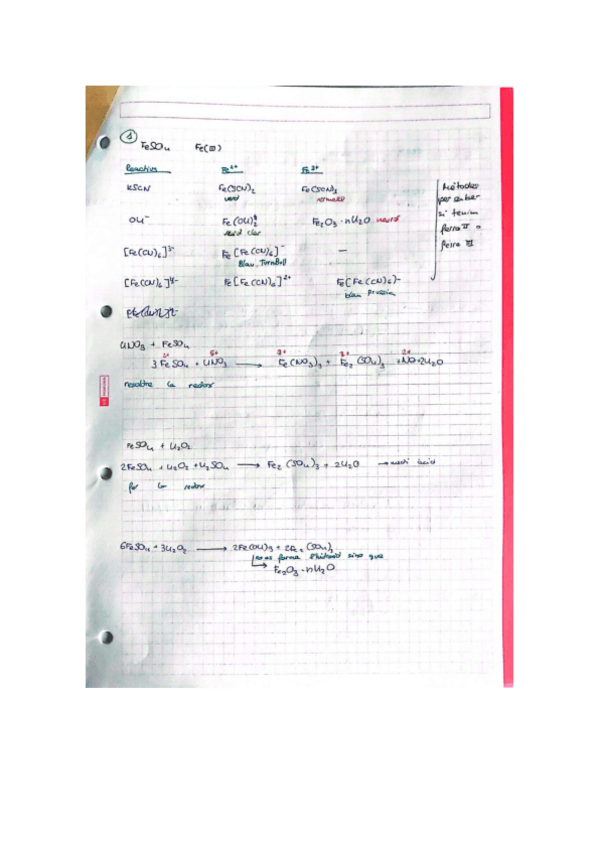 1
FeSO4 Fe(III)
Reactius Fe2+ Fe3+
KSCN Fe(SCN)2 Fe(SCN)3
verd vermell
OH- Fe(OH)2 Fe2O3·nH2O marró
verd clar
[Fe(CN)6]3- Fe[Fe(CN)6]- —
Blau Turnbull
[Fe(CN)6]4- Fe[Fe(CN)6]2- Fe[Fe(CN)6]-
blau Prussia
Mètodes
per saber
si tenim
ferro II o
ferro III
HNO3 + FeSO4
2+ 5+ 3+ 3+ 2+
3FeSO4 + HNO3 → Fe(NO3)3 + Fe2(SO4)3 + NO + 2H2O
resoldre la redox
FeSO4 + H2O2
2FeSO4 + H2O2 + H2SO4 → Fe2(SO4)3 + 2H2O → medi àcid
fer la redox
6FeSO4 + 3H2O2 → 2Fe(OH)3 + 2Fe2(SO4)3
no es forma l'hidròxid sino que
Fe2O3·nH2O